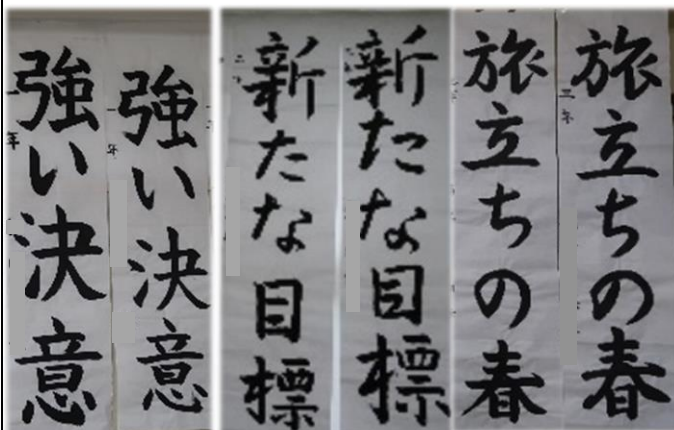 旅立ちの春
三年
旅立ちの春
新たな目標
新たな目標
強い決意
強い決意
一年